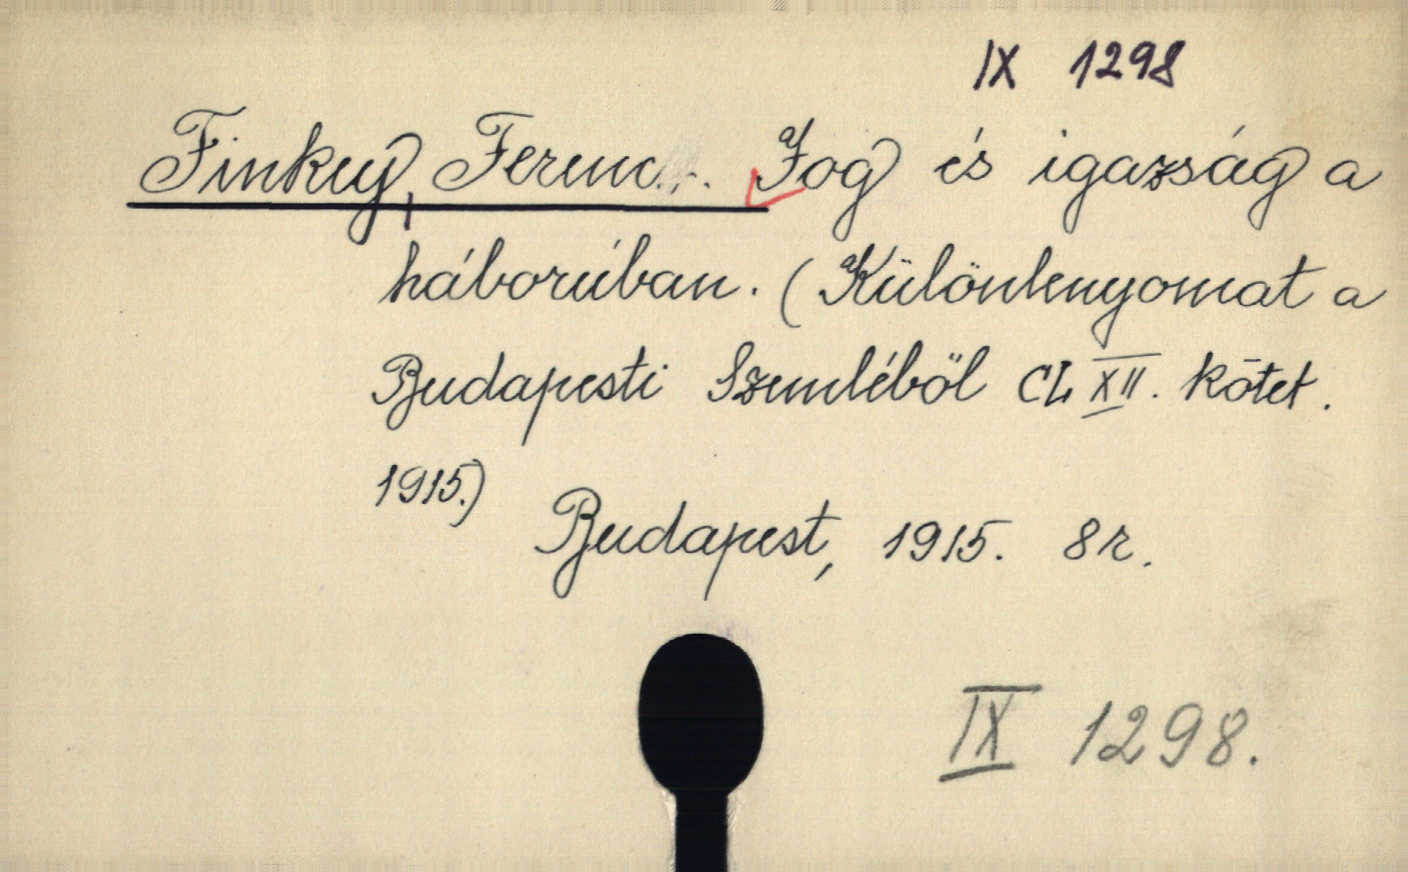 IX 1298
Finkey, Ferenc. Jog és igazság a
háborúban. (Különlenyomat a
Budapesti Szemléből CLXII. kötet.
1915.)
Budapest, 1915. 8r.
IX 1298.